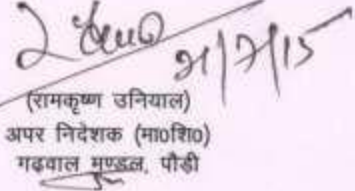 (रामकृष्ण उनियाल)
अपर निदेशक (मा०शि०)
गढवाल मण्डल, पौड़ी